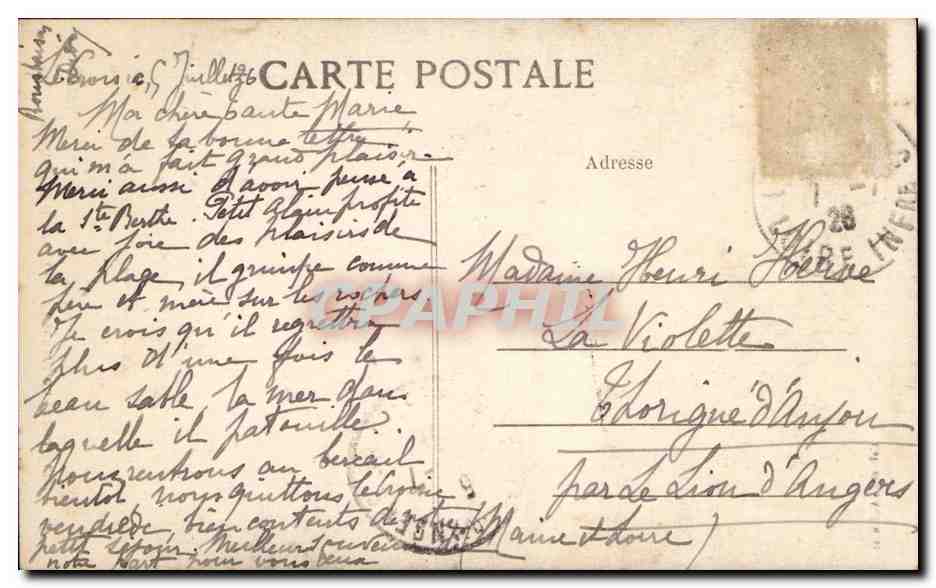 CARTE POSTALE
Le Croisic, 5 Juillet 26
Ma chère tante Marie
Merci de ta bonne lettre
qui m'a fait grand plaisir
Merci aussi d'avoir pensé à
la Ste Berthe. Petit Alain profite
avec joie des plaisirs de
la plage, il grimpe comme
père et mère sur les rochers
Je crois qu'il regrettra
plus d'une fois le
beau sable, la mer dans
laquelle il patouille.
Nous rentrons au bercail
bientôt nous quittons le Croisic
vendredi bien contents de notre
petit séjour. Meilleur souvenir
notre part pour vous deux
Adresse
Madame Henri Hervé
La Violette
Thorigné d'Anjou
par Le Lion d'Angers
(Maine & Loire)
26
CPAPHIL